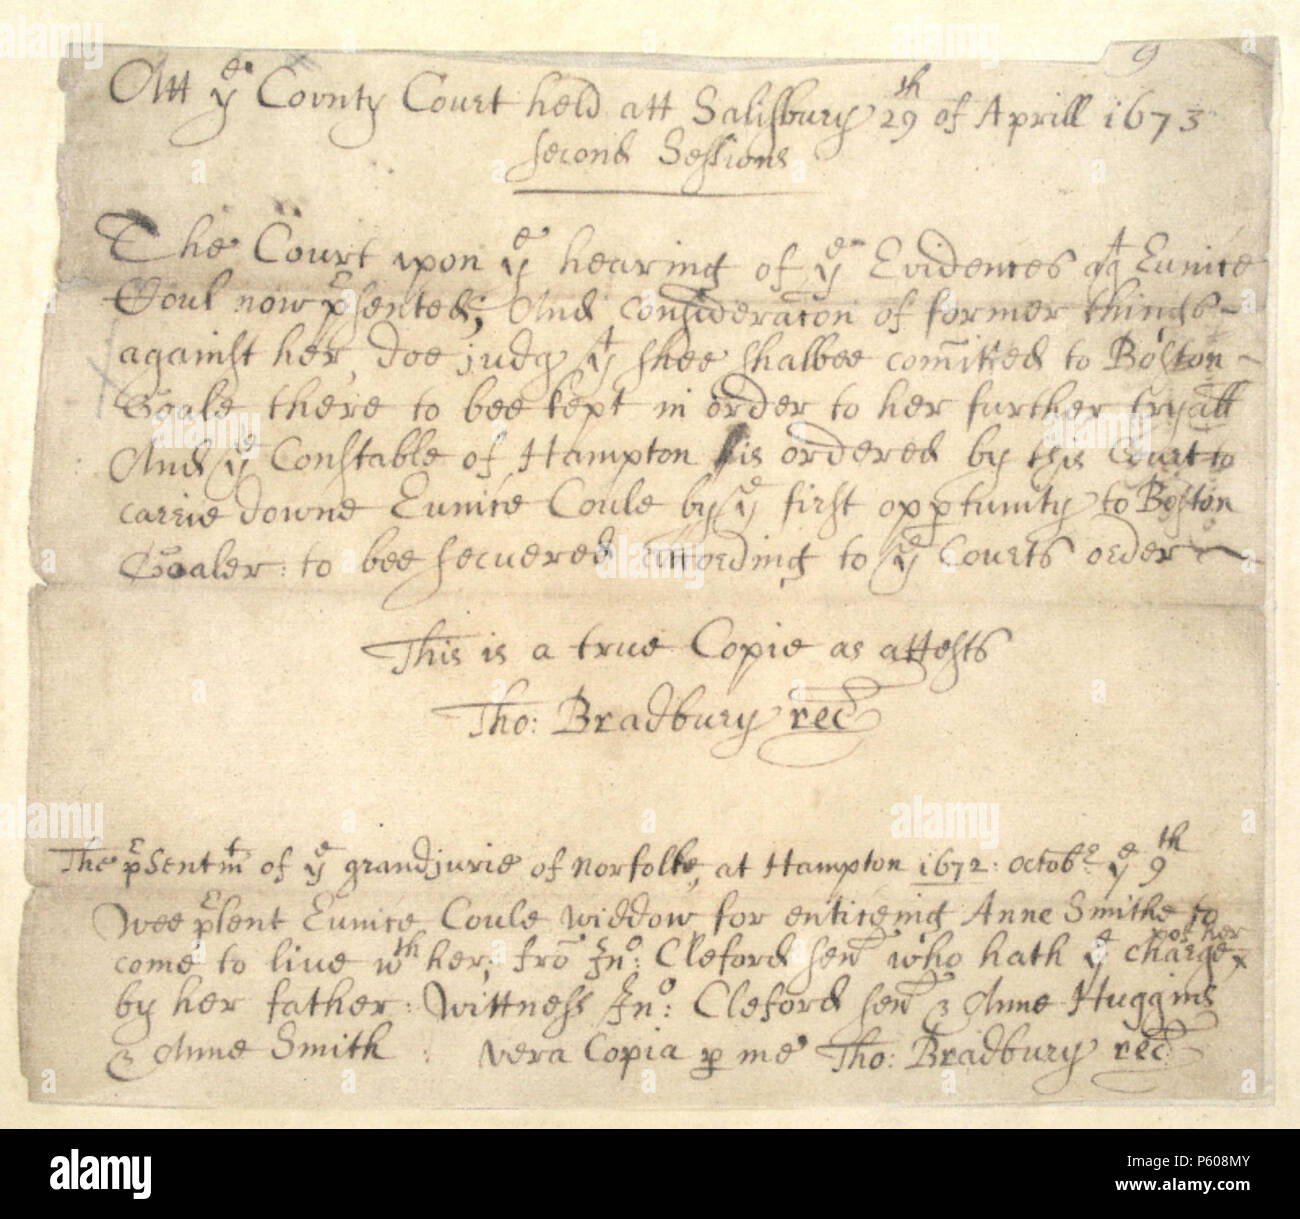 9
Att yᵉ County Court held att Salisbury 29ᵗʰ of Aprill 1673
second Sessions
The Court upon yᵉ hearing of yᵉ Evidences agᵗ Eunice
Coul now pʳsented; And consideracon of former things
against her, doe judg yᵗ shee shalbee comitted to Boston
Goale there to bee kept in order to her further tryall
And yᵉ Constable of Hampton is ordered by this Court to
carrie downe Eunice Coule by yᵉ first opptunity to Boston
Goaler: to bee secuered according to yᵉ Courts order
This is a true Copie as attests
Tho: Bradbury recᵈ
The pʳsentmᵗ of yᵉ grandjurie of Norfolke, at Hampton 1672: Octobʳ yᵉ 9ᵗʰ
Wee pʳsent Eunice Coule widdow for enticeing Anne Smithe to
come to live wᵗʰ her, frō Jnᵒ: Cleford senʳ who hath yᵉ charge of her
by her father: Wittness Jnᵒ: Cleford senʳ & Anne Huggins
& Anne Smith : vera Copia p me Tho: Bradbury recᵈ
alamy
a
alamy stock photo
P608MY
www.alamy.com